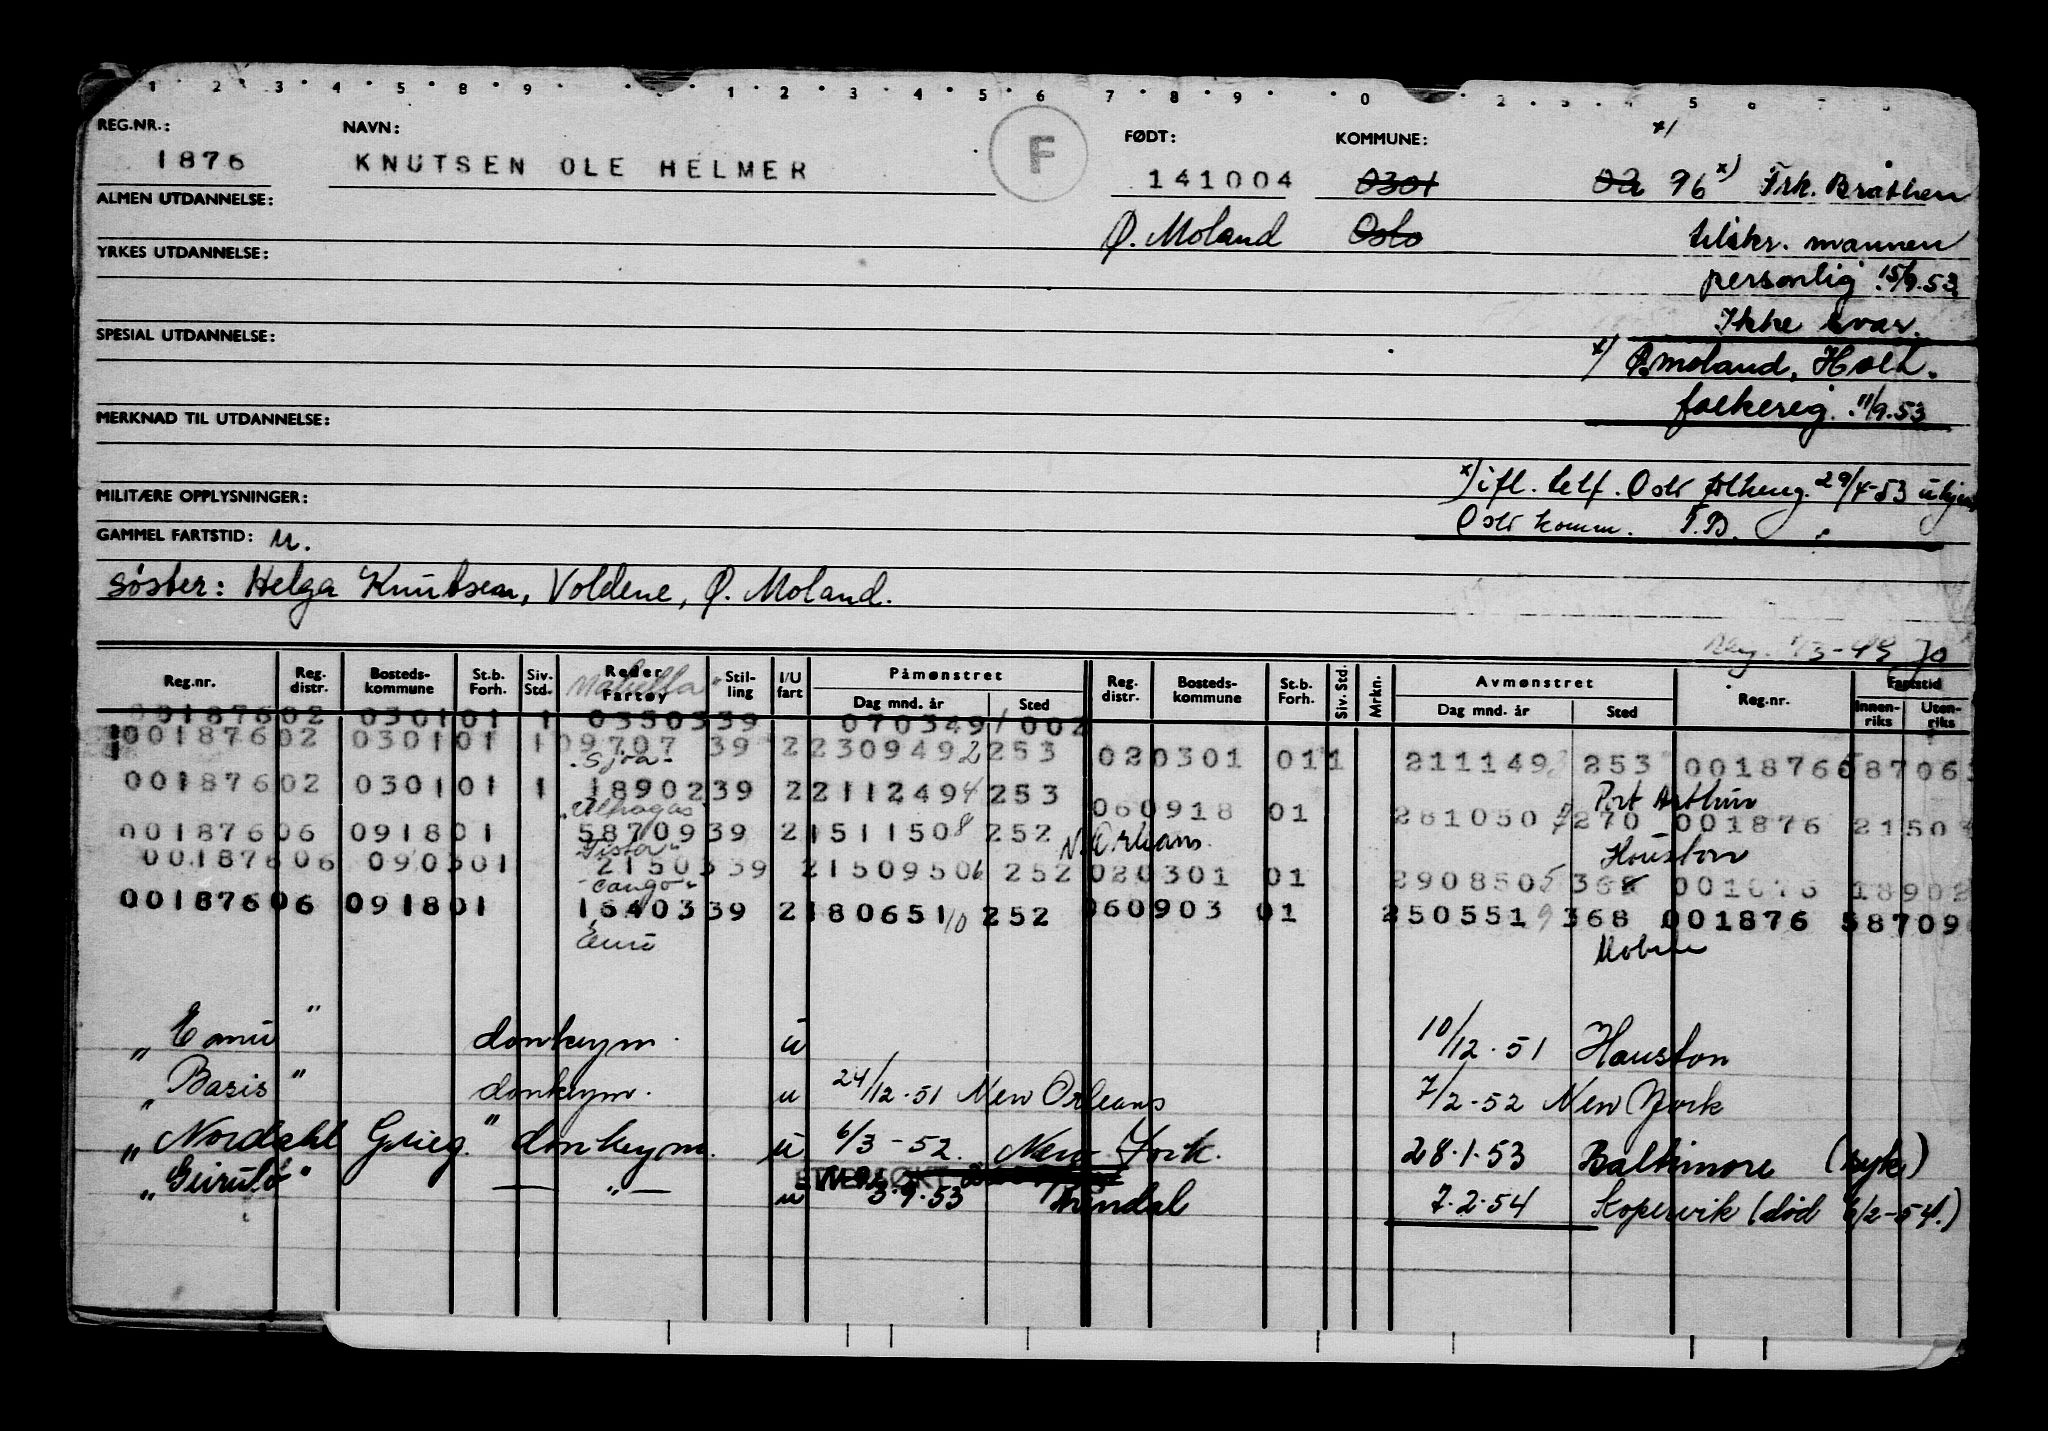 1 2 3 4 5 8 9 1 2 3 4 5 6 7 8 9 0 2 3 4 5 6 7 8
REG.NR.: NAVN: F FØDT: KOMMUNE: x)
1876 KNUTSEN OLE HELMER 141004 0301 02 96 x) Frk. Bråthen
ALMEN UTDANNELSE:
Ø. Moland Oslo tilskr. mannen
YRKES UTDANNELSE:
personlig 15/9.53.
Ikke svar.
SPESIAL UTDANNELSE:
x) Ø.moland, Holt.
folkereg. 11/9.53
MERKNAD TIL UTDANNELSE:
x) ifl. telf. Oslo 29/4-53 ukjent
MILITÆRE OPPLYSNINGER:
Oslo komm. T.B.
GAMMEL FARTSTID: u.
søster: Helga Knutsen, Voldene, Ø. Moland.
1/3-49 Jo
Reg.nr. Reg. distr. Bosteds-kommune St.b. Forh. Siv. Std. Reder Fartøy Stil-ling I/U fart Påmønstret Dag mnd. år Sted Reg. distr. Bosteds-kommune St.b. Forh. Siv. Std. Mrkn. Avmønstret Dag mnd. år Sted Reg.nr. Fartstid Innen-riks Uten-riks
00187602 030101 1 0350339 070349 1 002
00187602 030101 1 09707 39 2 230949 2 253 020301 01 1 211149 3 253 001876 08706
00187602 030101 1 18902 39 2 211249 4 253 060918 01 281050 7 270 Port Arthur 001876 21503
00187606 091801 58709 39 2 151150 8 252 N. Orleans
00187606 090301 21503 39 2 150950 6 252 020301 01 290850 5 368 Houston 001876 18902
00187606 091801 16403 39 2 180651 10 252 060903 01 250551 9 368 001876 58709
Emu Mobile
„Emu" donkeym. u 10/12.51 Houston
„Basis" donkeym. u 24/12.51 New Orleans 7/2-52 New York
„Nordahl Grieg" donkeym. u 6/3-52. New York. 28.1.53 Baltimore (syk)
ETTERSØKT
„Geirulv" — „ — u 3.9.53 Arendal 7.2.54 Kopervik (død 6/2-54.)